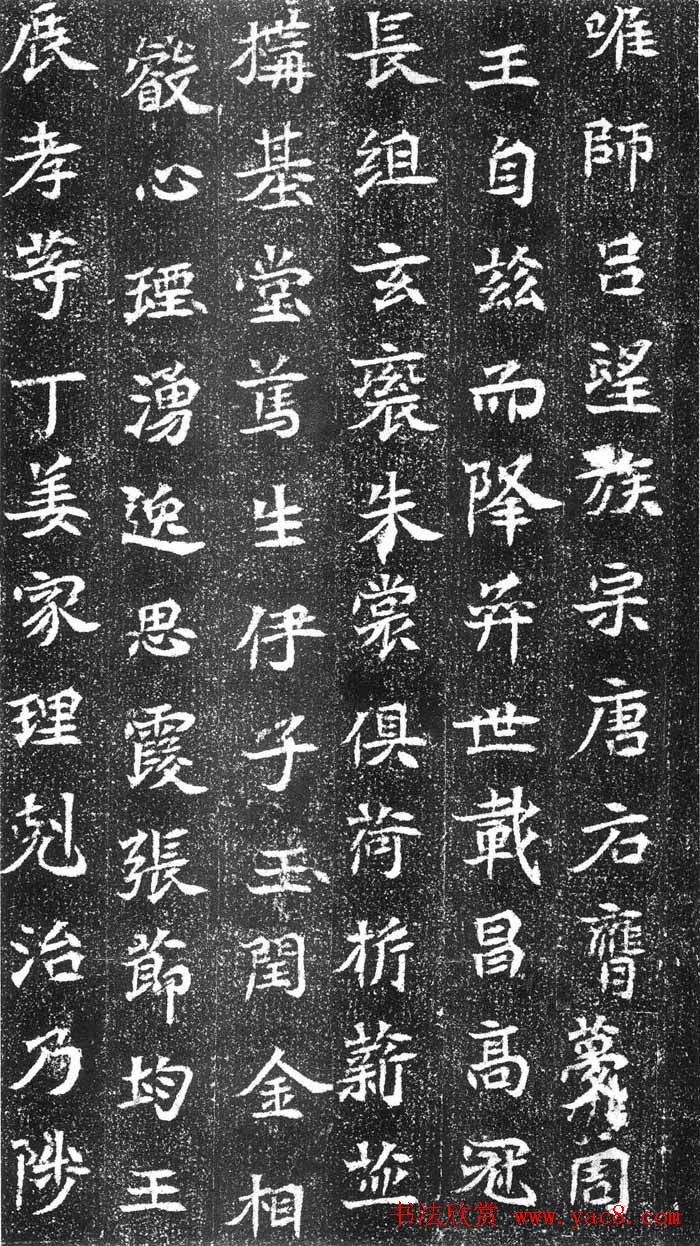 唯師吕望族宗唐右膺夢周
王自茲而降弈世載昌高冠
長組玄裘朱裳俱荷析薪並
搆基堂蔦生伊子玉閏金相
叡心理湧逸思霞張節均王
展孝等丁姜家理剋治乃陟
书法欣赏 www.yac8.com